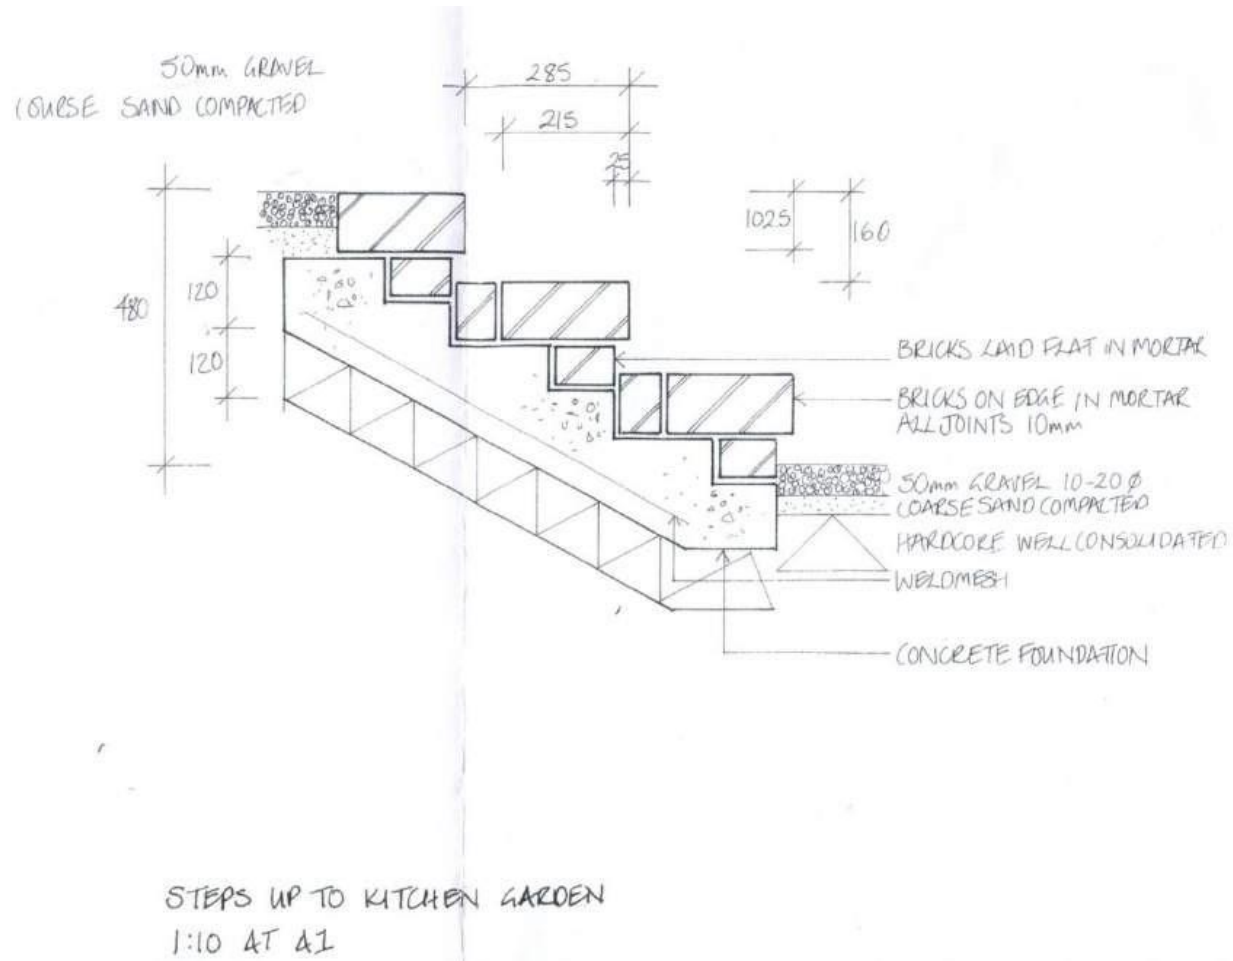 50mm GRAVEL
COURSE SAND COMPACTED
285
215
25
1025
160
480
120
120
BRICKS LAID FLAT IN MORTAR
BRICKS ON EDGE IN MORTAR
ALL JOINTS 10mm
50mm GRAVEL 10-20 Ø
COARSE SAND COMPACTED
HARDCORE WELL CONSOLIDATED
WELDMESH
CONCRETE FOUNDATION
STEPS UP TO KITCHEN GARDEN
1:10 AT A1